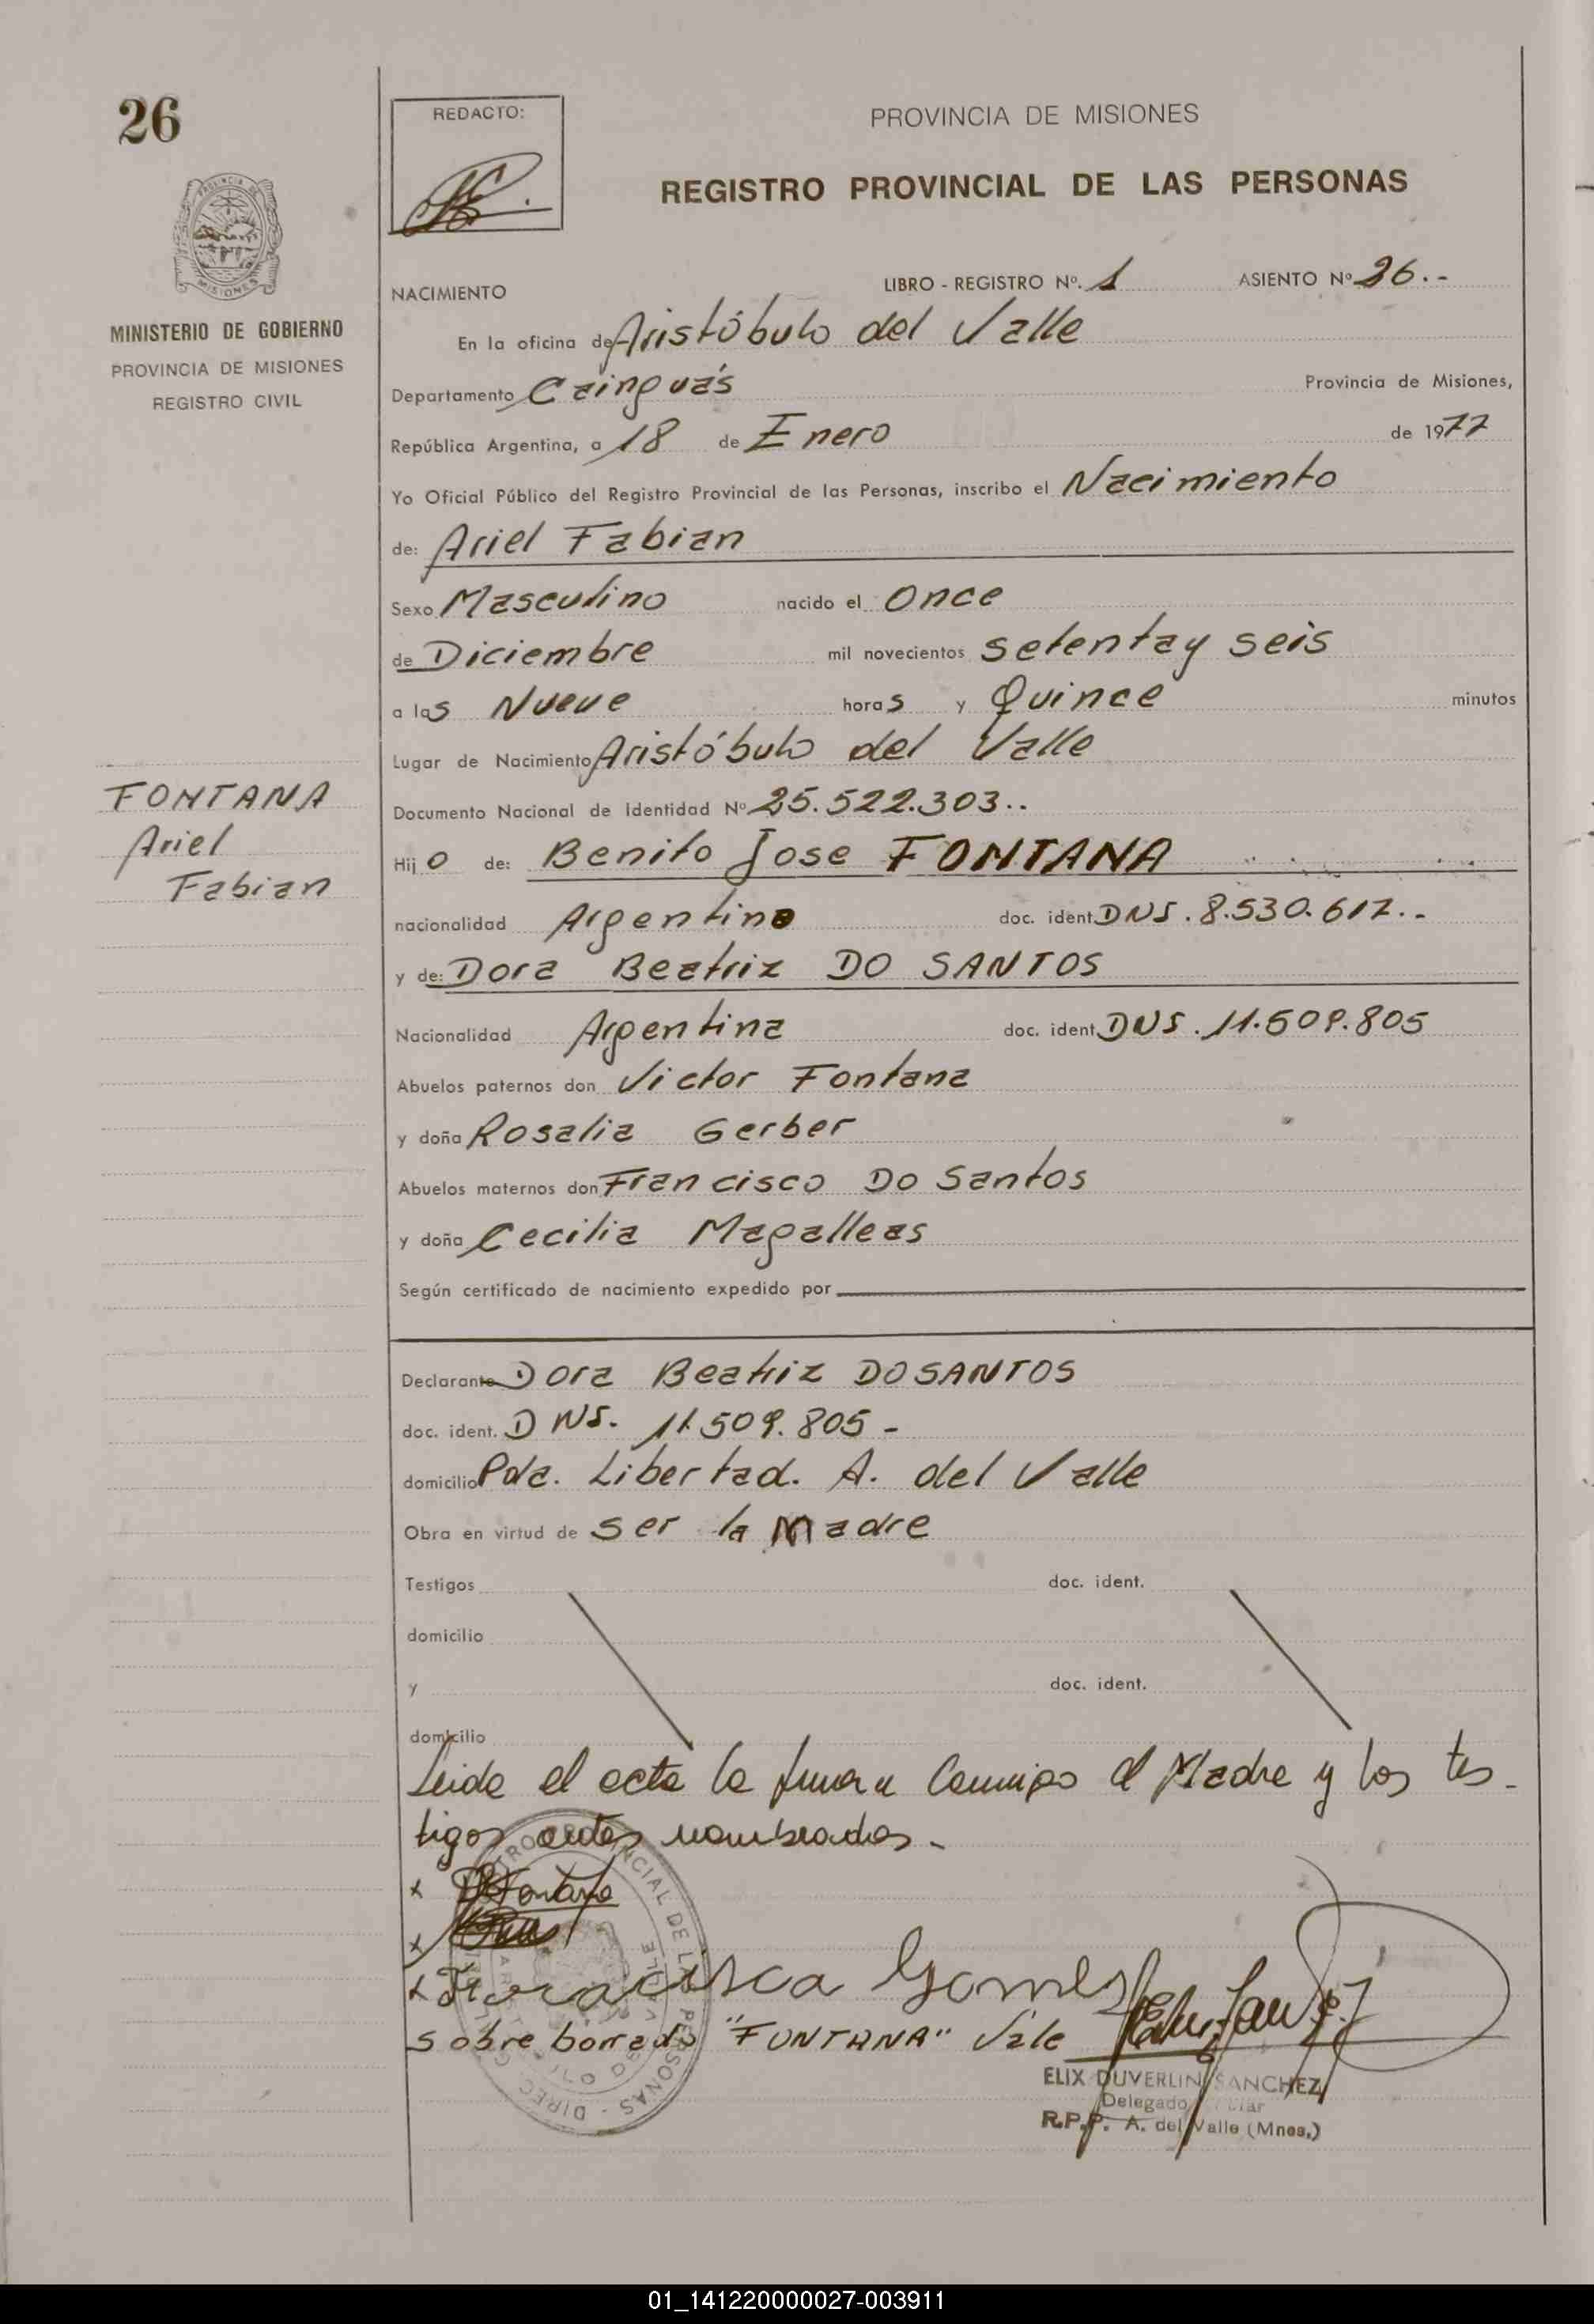 26
REDACTO:
PROVINCIA DE MISIONES
REGISTRO PROVINCIAL DE LAS PERSONAS
MINISTERIO DE GOBIERNO
PROVINCIA DE MISIONES
REGISTRO CIVIL
NACIMIENTO
LIBRO - REGISTRO Nº. 1 ASIENTO Nº 26.-
En la oficina de Aristóbulo del Valle
Departamento Cainguás Provincia de Misiones,
República Argentina, a 18 de Enero de 1977
Yo Oficial Público del Registro Provincial de las Personas, inscribo el Nacimiento
de: Ariel Fabian
Sexo Masculino nacido el Once
de Diciembre mil novecientos setenta y seis
a las Nueve horas y Quince minutos
Lugar de Nacimiento Aristóbulo del Valle
FONTANA
Ariel
Fabian
Documento Nacional de Identidad Nº 25.522.303..
Hijo de: Benito Jose FONTANA
nacionalidad Argentino doc. ident. DNI. 8.530.617..
y de: Dora Beatriz DO SANTOS
Nacionalidad Argentina doc. ident. DNI. 11.509.805
Abuelos paternos don Victor Fontana
y doña Rosalia Gerber
Abuelos maternos don Francisco Do Santos
y doña Cecilia Magalleas
Según certificado de nacimiento expedido por
Declarante Dora Beatriz DO SANTOS
doc. ident. DNI. 11.509.805 -
domicilio Pda. Libertad. A. del Valle
Obra en virtud de ser la Madre
Testigos doc. ident.
domicilio
y doc. ident.
domicilio
Leida el acta la firman Conmigo el Madre y los tes-
tigos antes nombrados.-
x Fontana
x
x Francisca Gomes
sobre borrado "FONTANA" Vale
ELIX DUVERLIN SANCHEZ
Delegado
R.P.P. A. del Valle (Mnes.)
01_141220000027-003911